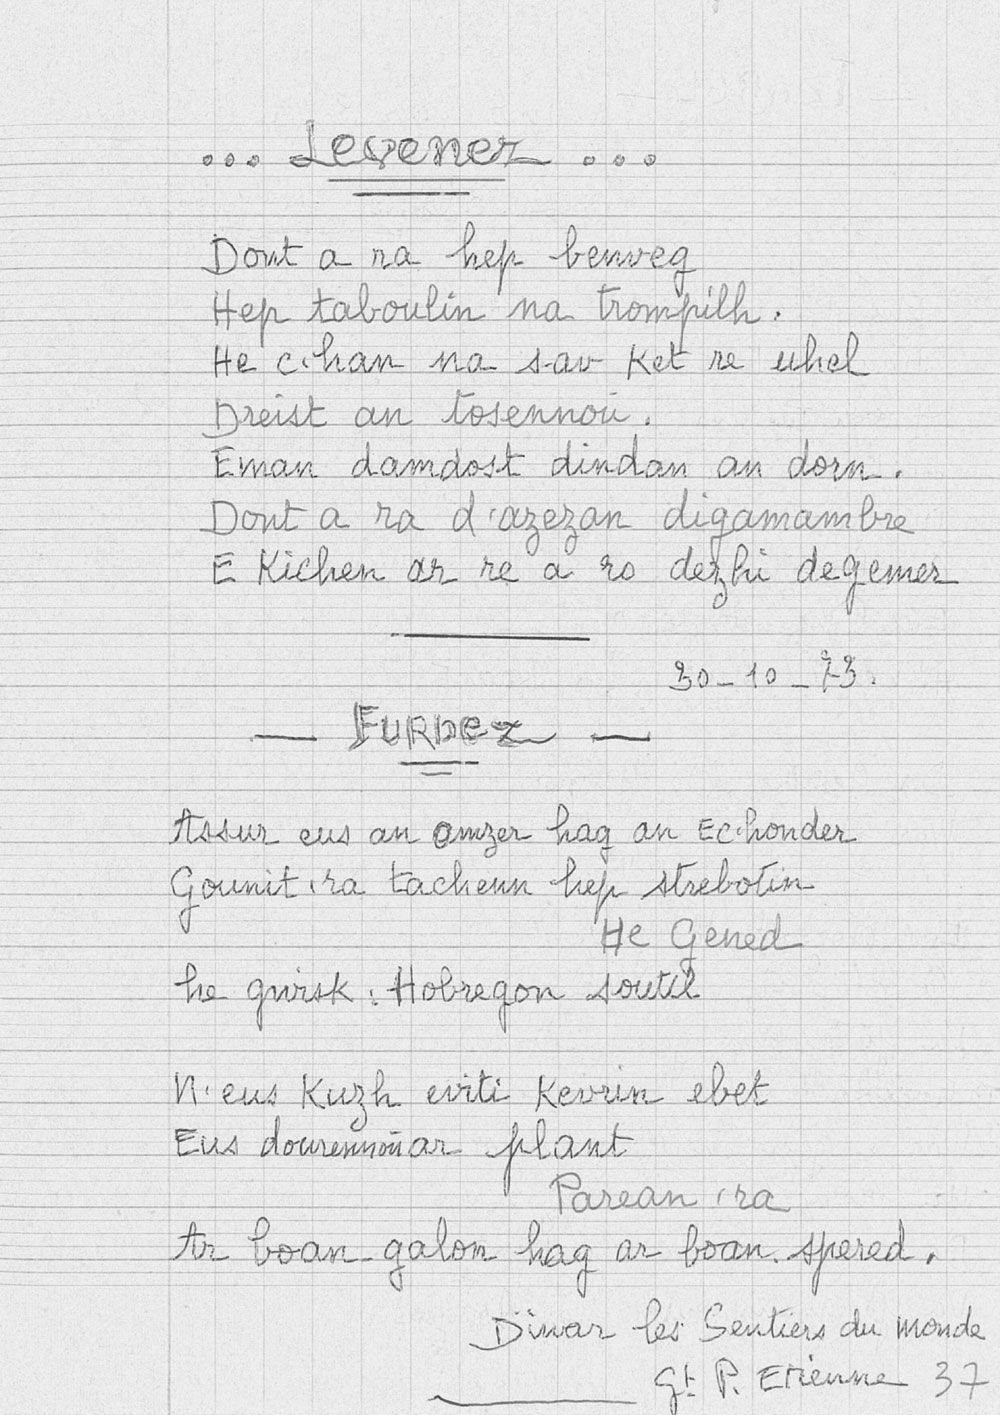 ... Levenez ...
Dont a ra hep benveg
Hep taboulin na trompilh.
He c'han na sav Ket re uhel
Dreist an tosennoù.
Eman damdost dindan an dorn.
Dont a ra d'azezan digamambre
E Kichen ar re a ro dezhi degemer
30-10-73.
— FURDEZ —
Assur eus an amzer hag an Ec'honder
Gounit 'ra tachenn hep strebotin
He Gened
he gwisk : Hobregon soutil
N'eus Kuzh eviti Kevrin ebet
Eus dourennoù ar plant
Parean 'ra
Ar boan-galon hag ar boan-spered.
Diwar les Sentiers du monde
Gt P. Etienne 37